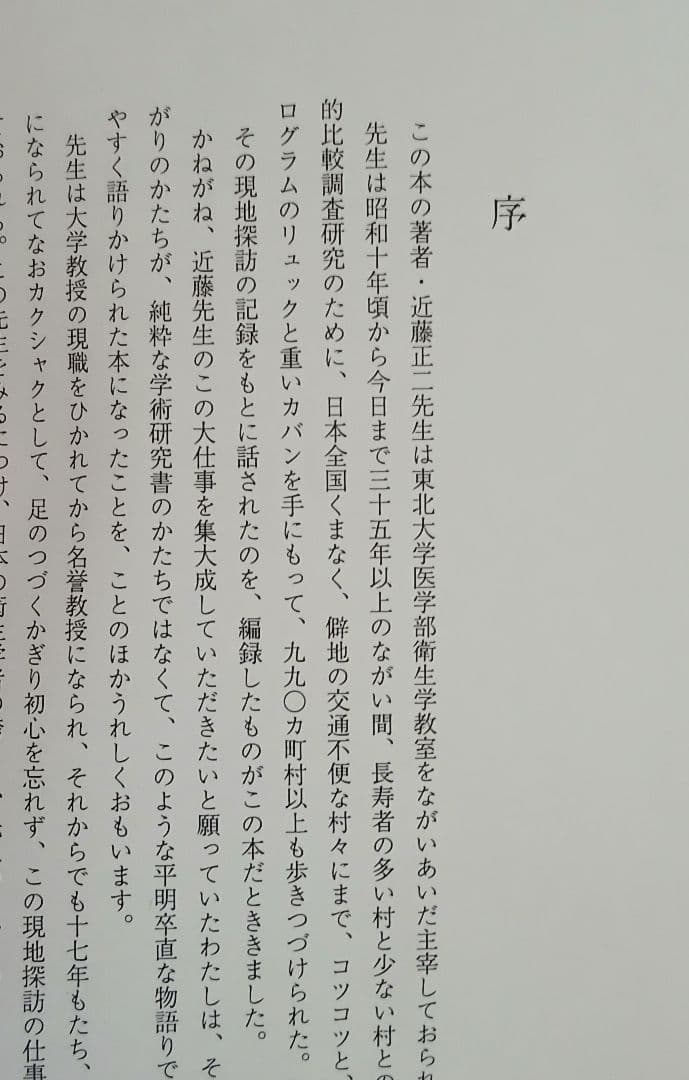 序
この本の著者・近藤正二先生は東北大学医学部衛生学教室をながいあいだ主宰しておられ
先生は昭和十年頃から今日まで三十五年以上のながい間、長寿者の多い村と少ない村との
的比較調査研究のために、日本全国くまなく、僻地の交通不便な村々にまで、コツコツと、
ログラムのリュックと重いカバンを手にもって、九九〇カ町村以上も歩きつづけられた。
その現地探訪の記録をもとに話されたのを、編録したものがこの本だとききました。
かねがね、近藤先生のこの大仕事を集大成していただきたいと願っていたわたしは、そ
がりのかたちが、純粋な学術研究書のかたちではなくて、このような平明卒直な物語りで
やすく語りかけられた本になったことを、ことのほかうれしくおもいます。
先生は大学教授の現職をひかれてから名誉教授になられ、それからでも十七年もたち、
になられてなおカクシャクとして、足のつづくかぎり初心を忘れず、この現地探訪の仕事